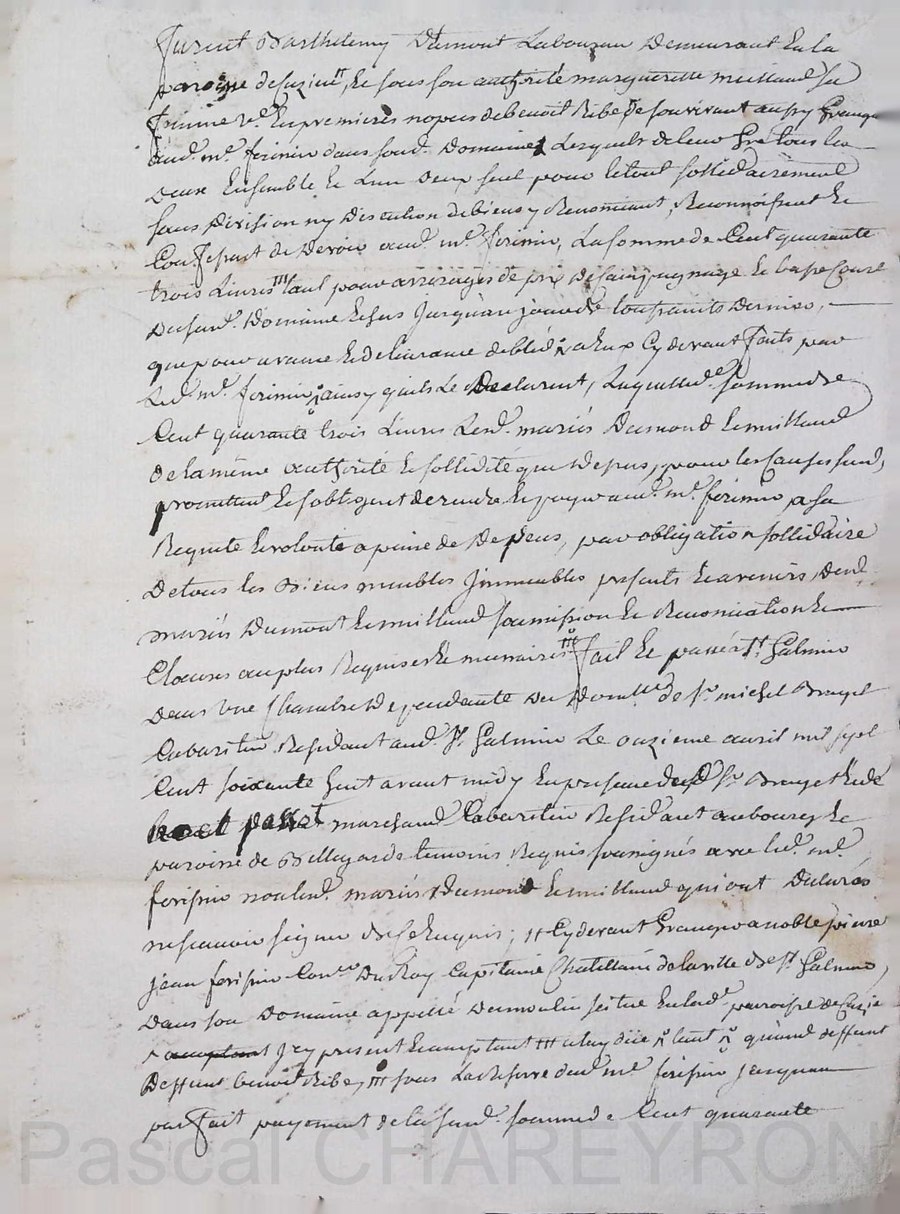 furent Barthelemy Dumont Laboureur Demeurant En la
paroisse de Cuzieu, Et sous son authorité margueritte muilland sa
femme ve. En premieres nopces de benoit Ribe de son vivant aussy Granger
aud. mr. ferimin dans sond. Domaine Lesquels de leur Gré tous les
Deux Ensemble Et Lun Deux seul pour le tout sollidairement
sans Division ny Discution de biens y Renoncant, Reconnoissent Et
Confessent de Devoir aud. mr. ferimin, La somme de Cent quarante
trois Livres tant pour arrerages de prix De Et basse Cour
Dususd. Domaine Echus Jusquau jour de toussaints Dernier,
que pour avance Et delivrance de bled a Eux Cy devant faits par
Led. mr. ferimin ainsy quils Le Declarent, Laquelle de. somme de
Cent quarante trois Livres Lesd. mariés Dumond Et muilland
de la même authorité Et sollidité que Dessus, pour les Causes susd,
promettent Et sobligent de rendre Et payer aud. mr. ferimin a sa
Requête Et volonté a peine de Depens, par obligation sollidaire
De tous les Biens meubles Jmmeubles presents Et avenirs Desd.
mariés Dumont Et muilland soumission Et Renonciation Et
Clauses au plus Requises Et necessaires fait Et passé a St. Galmier
Dans Une Chambre Dependante Du Domlle de sr. michel Bruyet
Cabaretier Residant aud. St. Galmier Le onzieme avril mil sept
Cent soixante huit avant midy En presence dud. Sr. Bruyet Et de
passet marchand Cabaretier Residant au bourg Et
paroisse de Bellegarde temoins Requis soussignés avec led. mr.
ferimin non lesd. mariés Dumond Et muilland qui ont Declarés
ne scavoir signer De ce Enquis; Cy devant Granger a noble pierre
jean ferimin Coner. Du Roy Capitaine Chatellain de la ville De St. Galmier,
Dans son Domaine appellé Du moulin situé En lad. paroisse de Cuzieu
Jcy present Et acceptant a luy due tant quaud. deffunt
Deffunt benoit Ribe, sous La Reserve dud. mr. ferimin jusquau
parfait payement de la susd. somme de Cent quarante
Pascal CHAREYRON